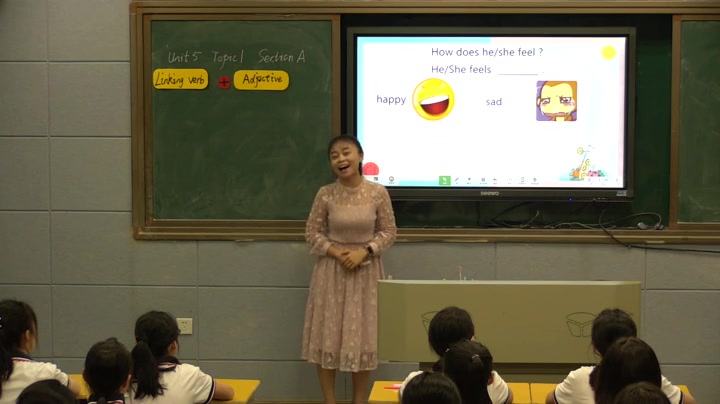 Unit 5 Topic 1 Section A
Linking verb + Adjective
How does he/she feel ?
He/She feels ________ .
happy
sad